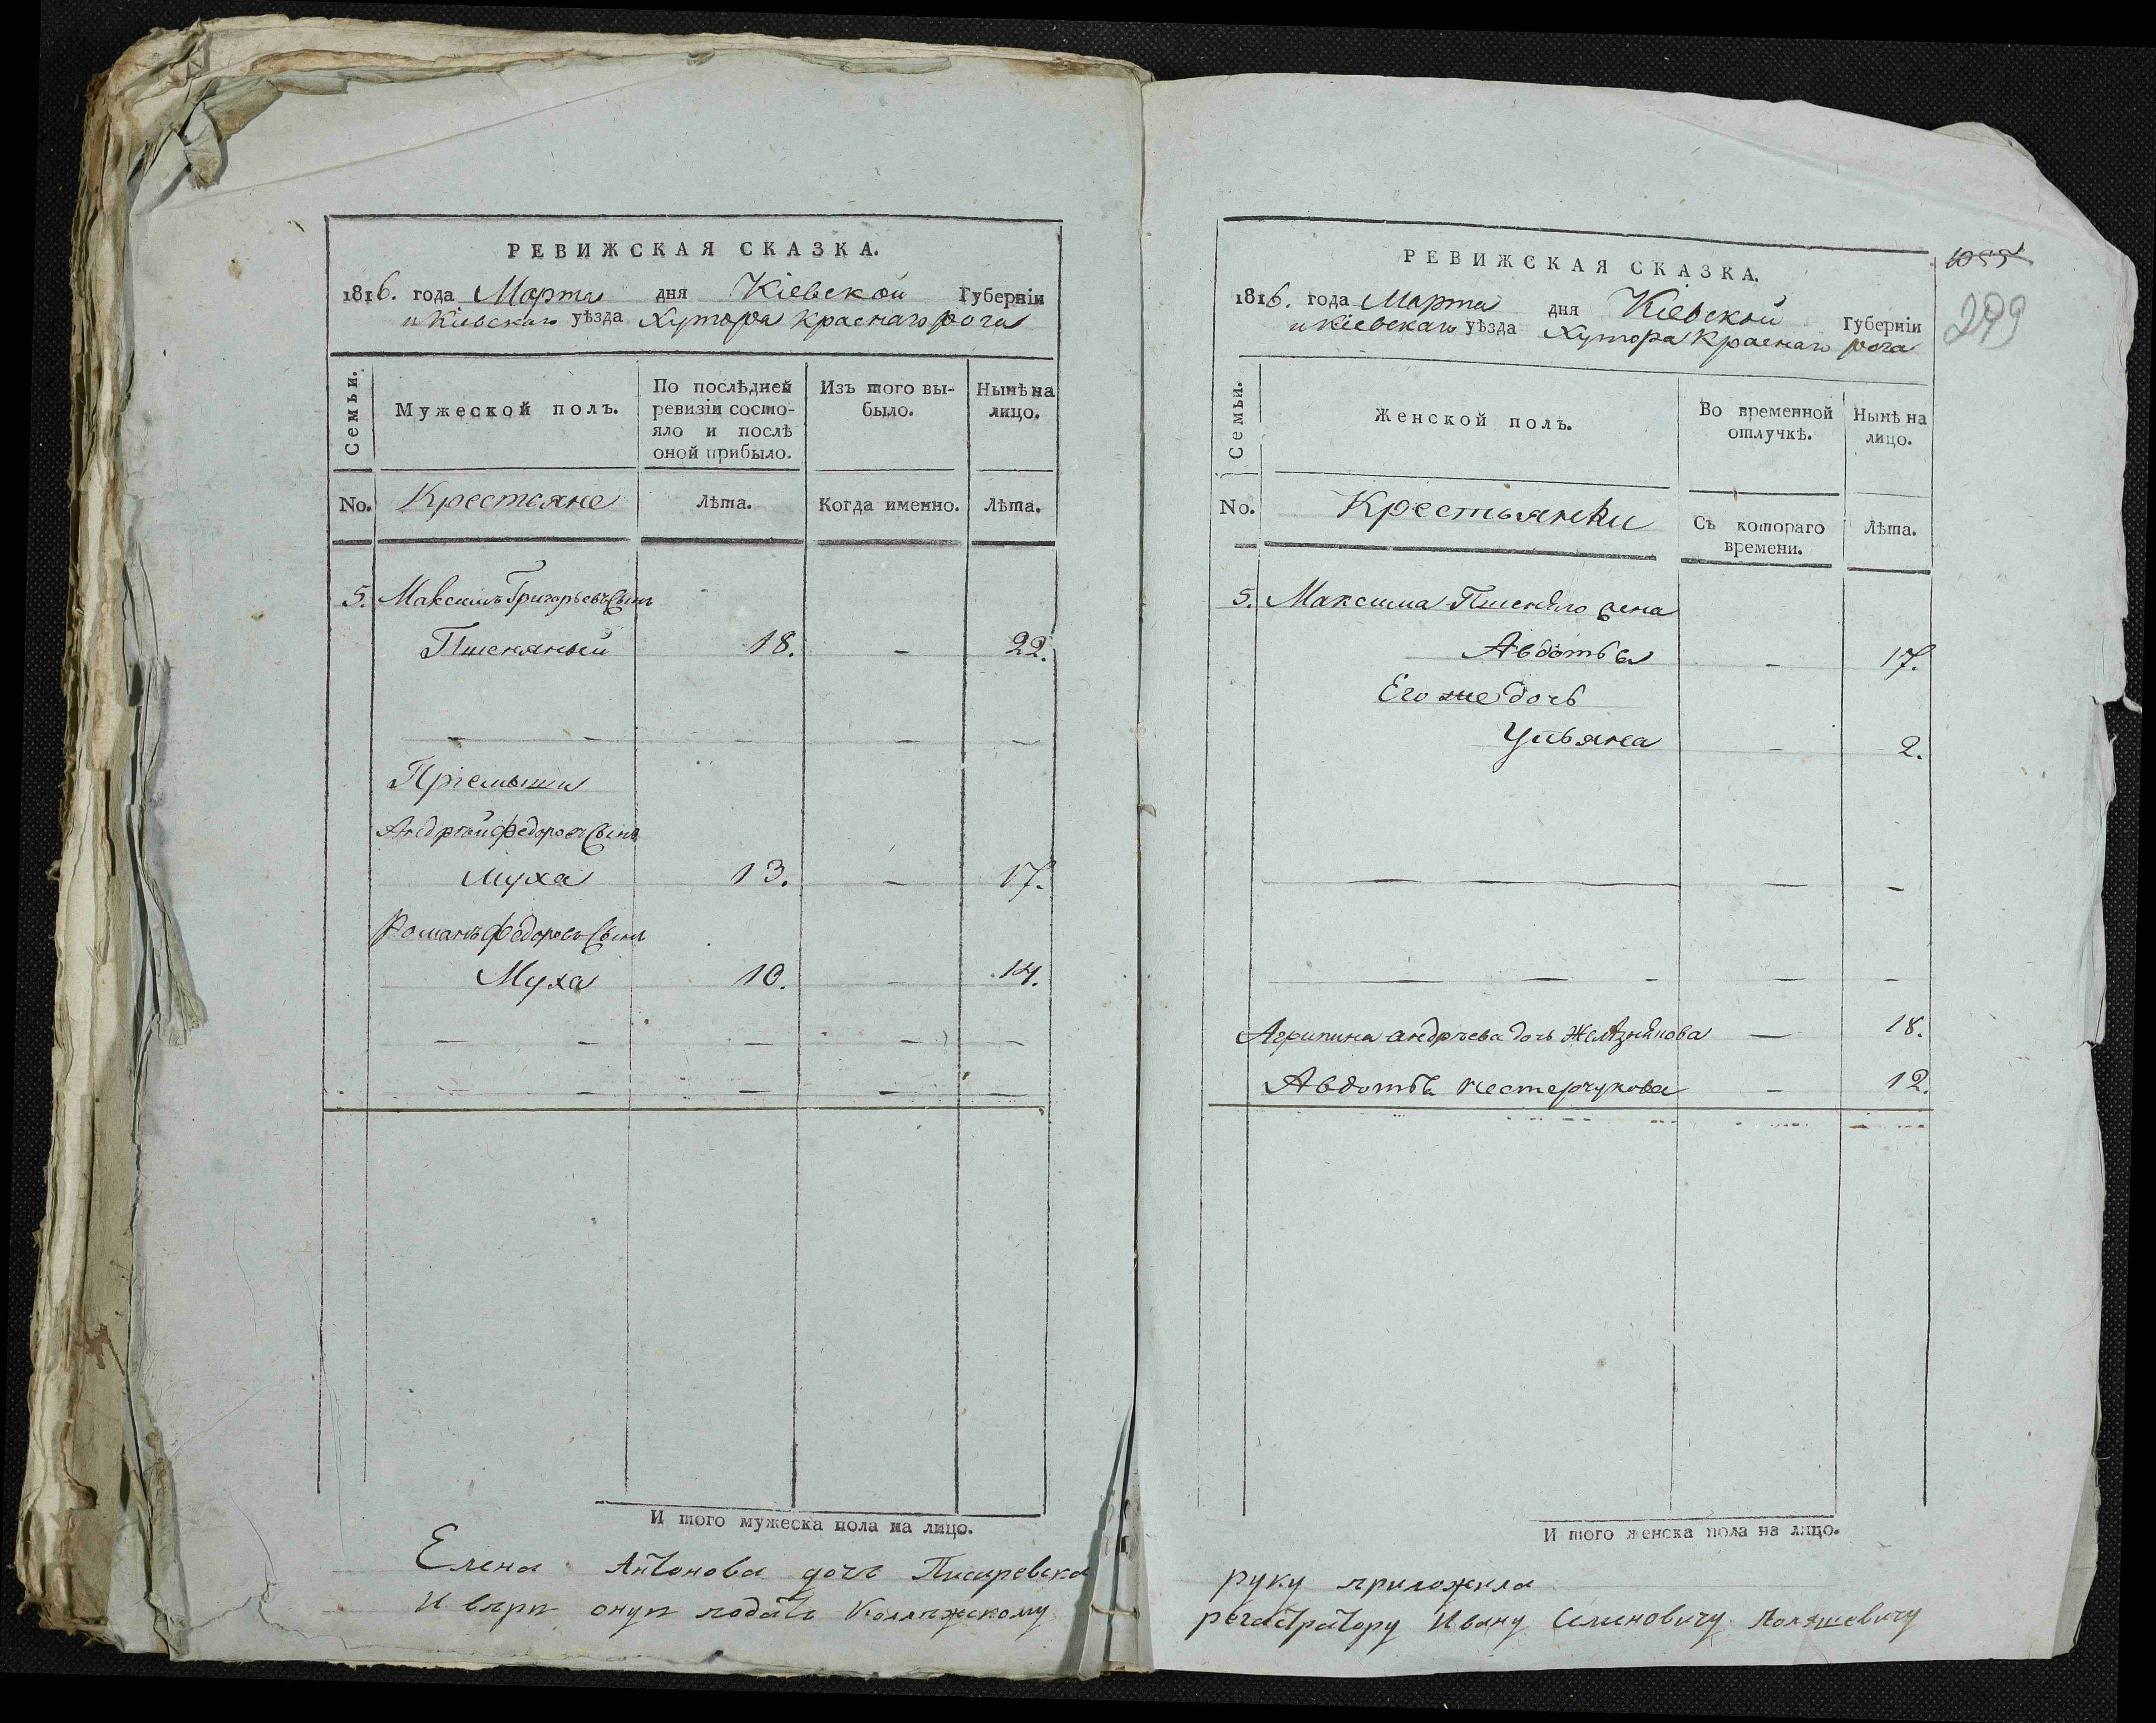 РЕВИЖСКАЯ СКАЗКА.
1816. года Марта дня Кіевской Губерніи
и Кіевскаго уѣзда Хутора Краснаго рога
Семьи.
Мужеской полъ.
По послѣдней ревизіи состо-
яло и послѣ оной прибыло.
Изъ того вы-
было.
Нынѣ на
лицо.
No.
Крестьяне
Лѣта.
Когда именно.
Лѣта.
5. Максимъ Григорьевъ Сынъ
Пшеняный 18. — 22.
Пріемыши
Андрѣй Федоровъ Сынъ
Муха 13. — 17.
Романъ Федоровъ Сынъ
Муха 10. — 14.
И того мужеска пола на лицо.
Елена Антонова дочь
И вѣрю оную подать
РЕВИЖСКАЯ СКАЗКА.
1816. года Марта дня Кіевской Губерніи
и Кіевскаго уѣзда Хутора Краснаго рога
299
Семьи.
Женской полъ.
Во временной
отлучкѣ.
Нынѣ на
лицо.
No.
Крестьянки
Съ котораго
времени.
Лѣта.
5. Максима жена
Авдотья — 17.
Его же дочь
Ульяна — 2.
Агрипина Андрѣева дочь Желѣзнякова — 18.
Авдотья Нестерчукова — 12.
И того женска пола на лицо.
руку приложила
регистратору Ивану Семеновичу